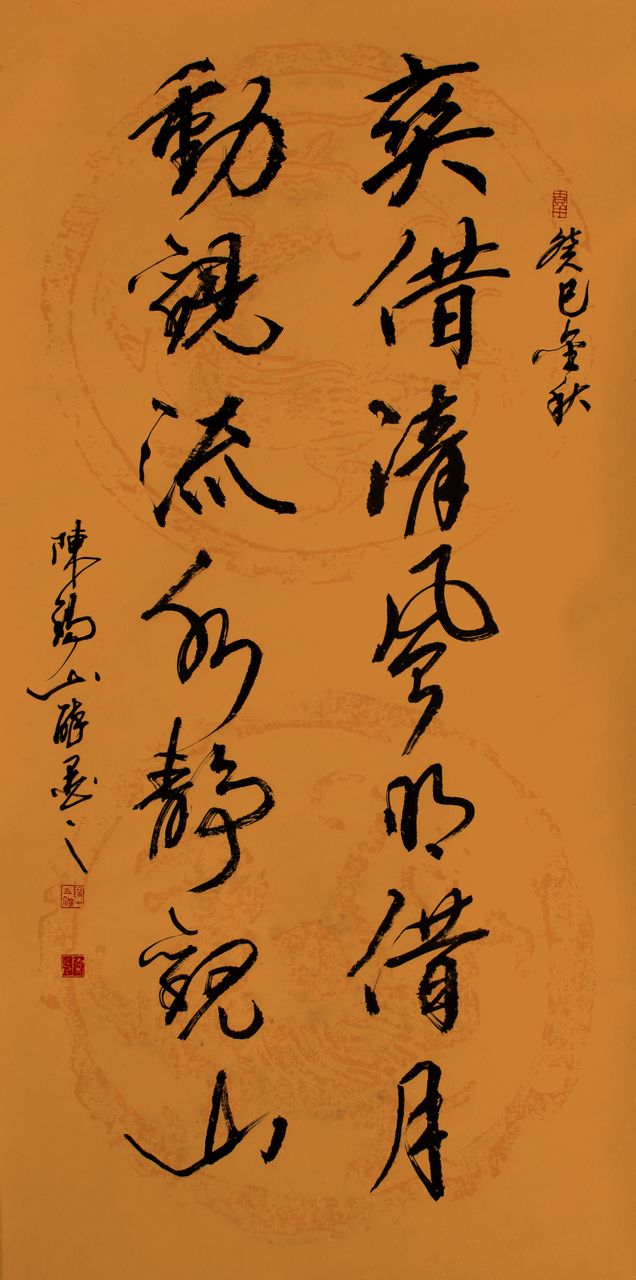 癸巳金秋
爽借清風明借月
動觀流水靜觀山
陳錫山醉墨之